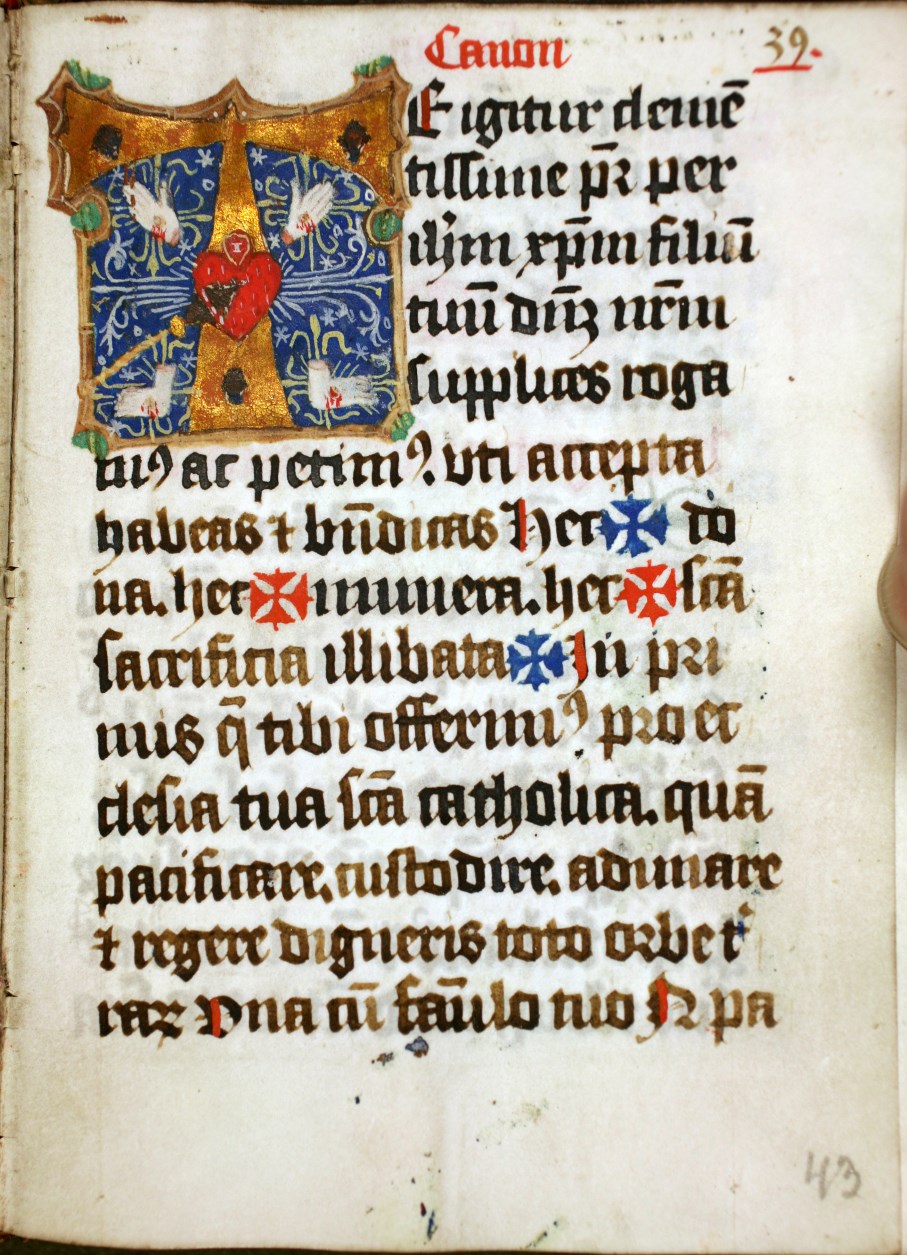 Canon 39.
TE igitur clemē
tissime pr̄ per
ihm xp̄m filiū
tuū dn̄m nr̄m
supplices roga
musꝰ ac petimꝰ. vti accepta
habeas ⁊ bn̄dicas hec ✠ do
na. hec ✠ munera. hec ✠ sc̄a
sacrificia illibata ✠ In pri
mis q̄ tibi offerimꝰ pro ec
clesia tua sc̄a catholica. quā
pacificare. custodire. adunare
⁊ regere digneris toto orbe t͛
raꝝ Vna cū famĺo tuo N pa
43